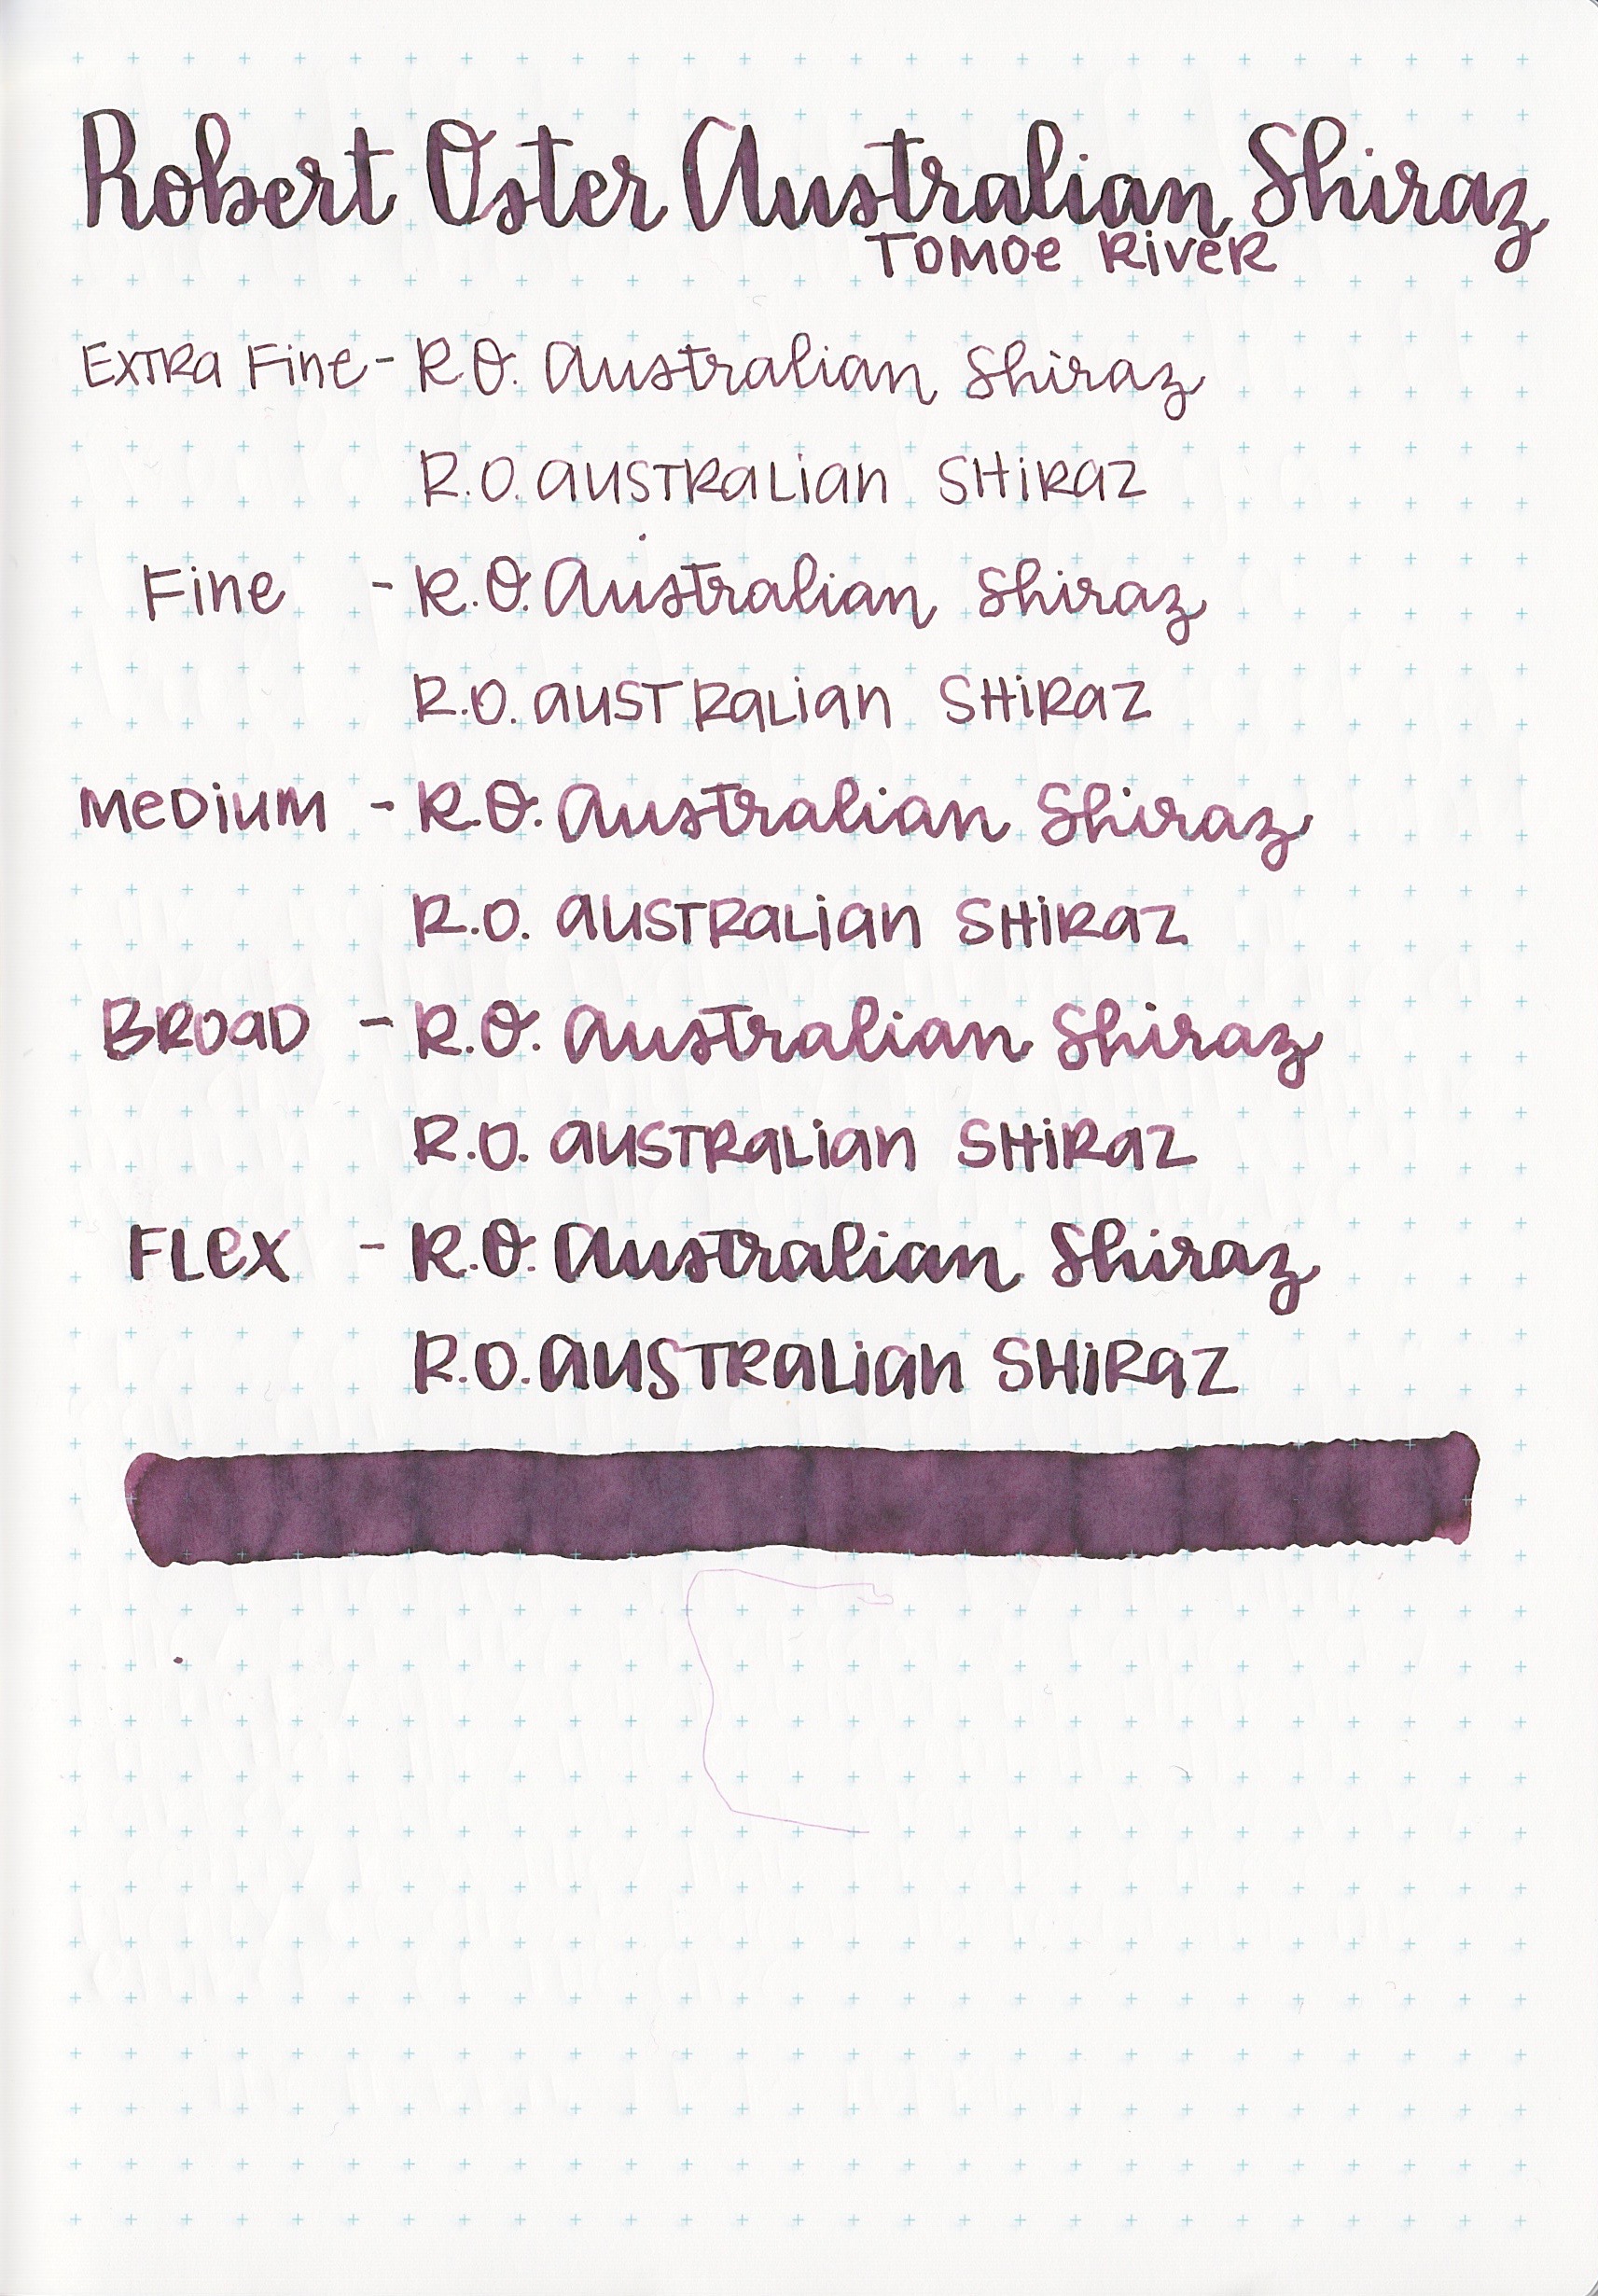 Robert Oster Australian Shiraz
TOMOe RiveR
EXTRa Fine - R.O. Australian Shiraz
R.O. aUSTRaLian SHiRaZ
Fine - R.O. Australian Shiraz
R.O. aUSTRaLian SHiRaZ
MeDiUM - R.O. Australian Shiraz
R.O. aUSTRaLian SHiRaZ
BROaD - R.O. Australian Shiraz
R.O. aUSTRaLian SHiRaZ
FLeX - R.O. Australian Shiraz
R.O. aUSTRaLian SHiRaZ